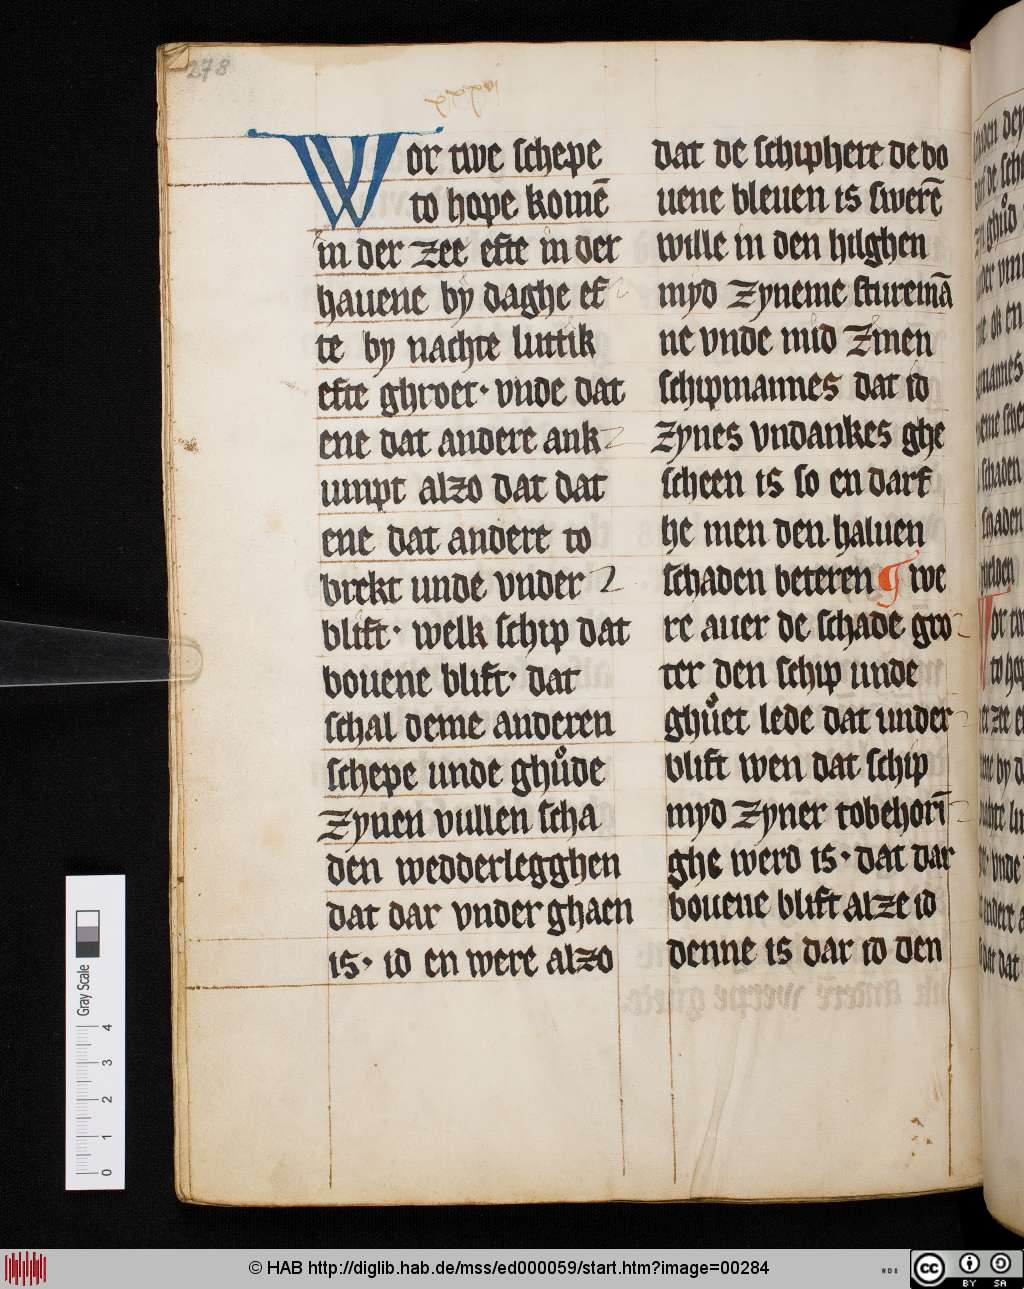 278
Wor twe schepe
to hope komē
in der zee efte in der
hauene by daghe ef
te by nachte luttik
efte ghroet· vnde dat
ene dat andere ank
umpt alzo dat dat
ene dat andere to
brekt unde vnder
blift· welk schip dat
bouene blift· dat
schal deme anderen
schepe unde ghůde
zynen vullen scha
den wedderlegghen
dat dar vnder ghaen
is· id en were alzo
dat de schiphere de bo
uene bleuen is swerē
wille in den hilghen
myd zyneme sturemā
ne vnde mid zinen
schipmannes dat id
zynes vndankes ghe
scheen is so en darf
he men den haluen
schaden beteren ¶ we
re auer de schade gro
ter den schip unde
ghůet lede dat under
blift wen dat schip
myd zyner tobehorī
ghe werd is· dat dar
bouene blift alze id
denne is dar id den
Gray Scale
0 1 2 3 4
© HAB http://diglib.hab.de/mss/ed000059/start.htm?image=00284
WDB
cc BY SA